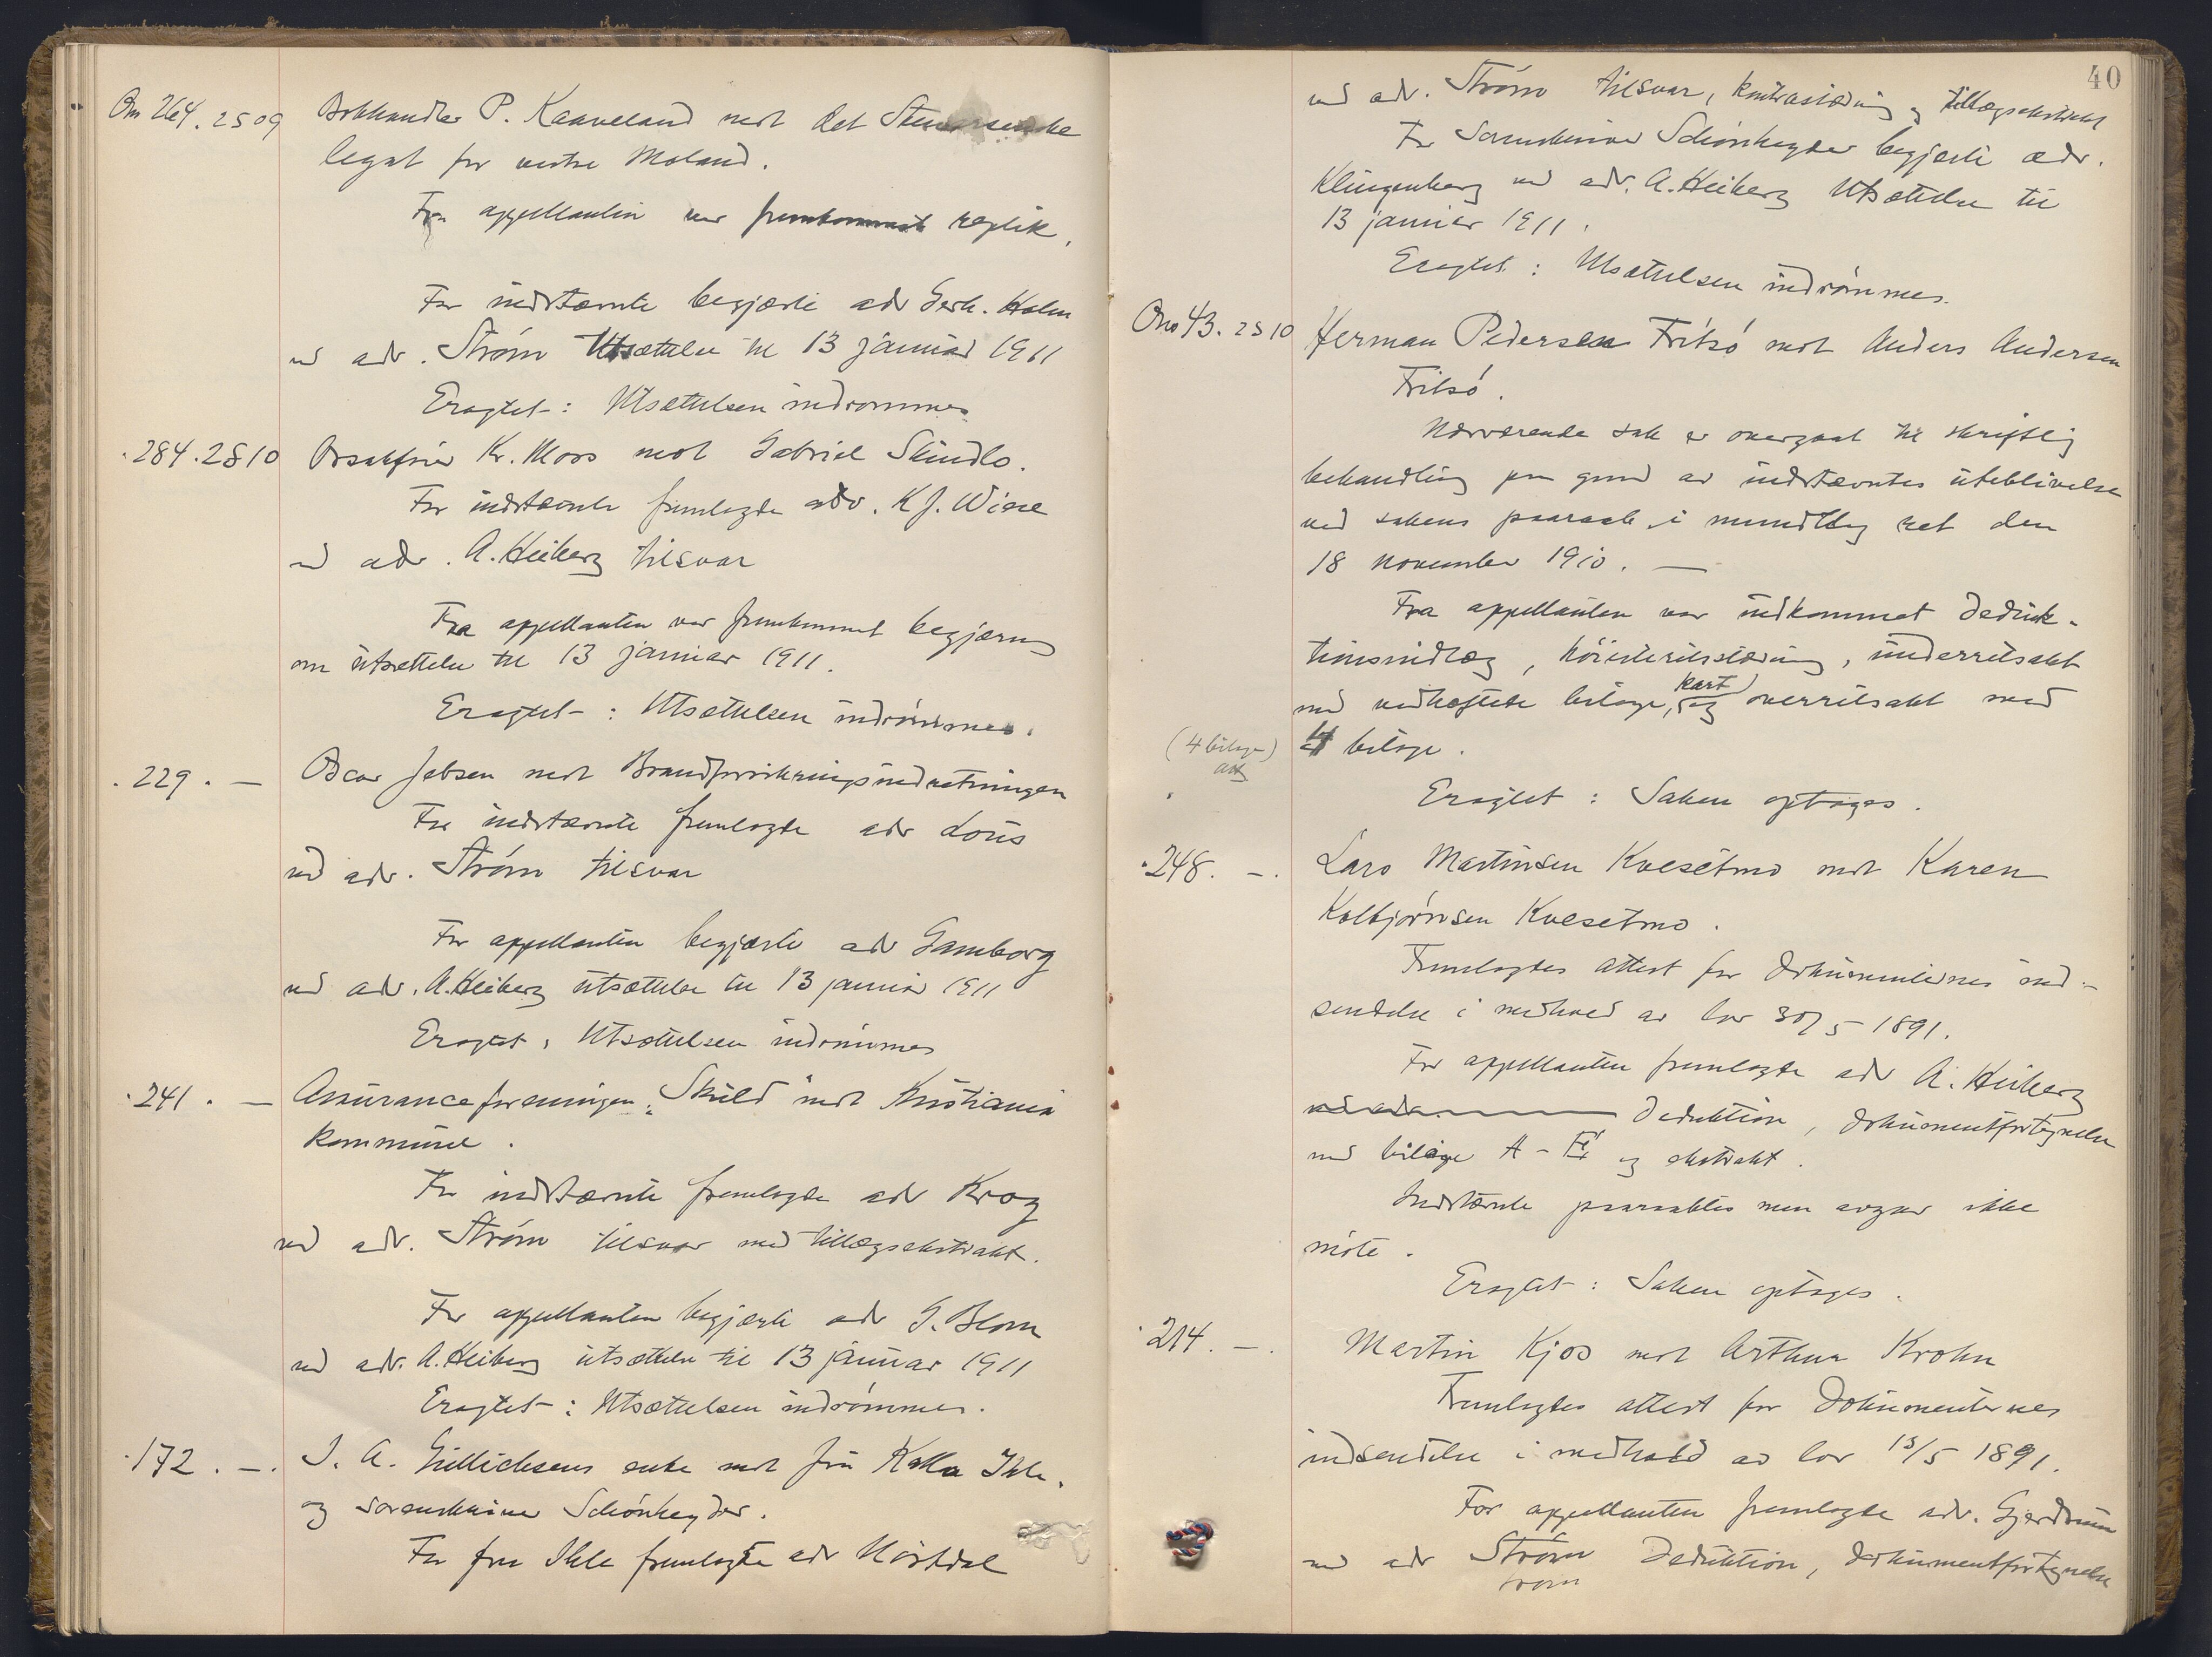 On 264. 2S 09 Bokhandler P. Kaaveland mot det
legat for vestre Moland.
Fra appellanten var fremkommet replik.
For indstævnte begjærte adv Gerh. Holm
ved adv. Strøm Utsættelse til 13 januar 1911
Eragtet: Utsættelsen indrømmes
284. 2S 10 Orsakfører Kr. Moss mot Gabriel Skindlo.
For indstævnte fremlagde adv. K J. Wiese
ved adv. A. Heiberg tilsvar
Fra appellanten var fremkommet begjæring
om utsættelse til 13 januar 1911.
Eragtet: Utsættelsen indrømmes.
229. — Oscar Jebsen mot Brandforsikringsindretningen
For indstævnte fremlagde adv Lous
ved adv. Strøm tilsvar
For appellanten begjærte adv Gamborg
ved adv. A. Heiberg utsættelse til 13 januar 1911
Eragtet, Utsættelsen indrømmes
241. — Assuranceforeningen "Skuld" mot Kristiania
kommune.
For indstævnte fremlagde adv Krog
ved adv. Strøm tilsvar med tillægsekstrakt.
For appellanten begjærte adv G. Blom
ved adv. A. Heiberg utsættelse til 13 januar 1911
Eragtet: Utsættelsen indrømmes.
172. — J. A. Gullichsens enke mot fru Kalla Ihle
og sorenskriver Schønheyder.
For fru Ihle fremlagde adv Hørsdal
40
ved adv. Strøm tilsvar, kontrastævning og tillægsekstrakt
For Sorenskriver Schønheyder begjærte adv.
Klingenberg ved adv. A. Heiberg Utsættelse til
13 januar 1911.
Eragtet: Utsættelsen indrømmes.
On 43. 2S 10 Herman Pedersen Fritsø mot Anders Andersen
Fritsø.
Nærværende sak er overgaat til skriftlig
behandling paa grund av indstævntes uteblivelse
ved sakens paaraab i mundtlig ret den
18 november 1910. —
Fra appellanten var indkommet Deduk-
tionsindlæg, høiesteretsstævning, underretsakt
med vedheftede bilage, kart og overretsakt med
(4 bilage) 4 bilage.
Eragtet: Saken optages.
248. — Lars Martinsen Kvesetmo mot Karen
Kolbjørnsen Kvesetmo.
Fremlagdes attest for dokumenternes ind-
sendelse i medhold av lov 30/5 1891.
For appellanten fremlagde adv A. Heiberg
ved adv. Deduktion, dokumentfortegnelse
med bilage A - E og ekstrakt.
Indstævnte paaraabtes men avgav ikke
møte.
Eragtet: Saken optages.
214. — Martin Kjos mot Arthur Krohn
Fremlagdes attest for Dokumenternes
indsendelse i medhold av lov 13/5 1891.
For appellanten fremlagde adv. Gjerdrum
ved adv Strøm Deduktion, dokumentfortegnelse
røm